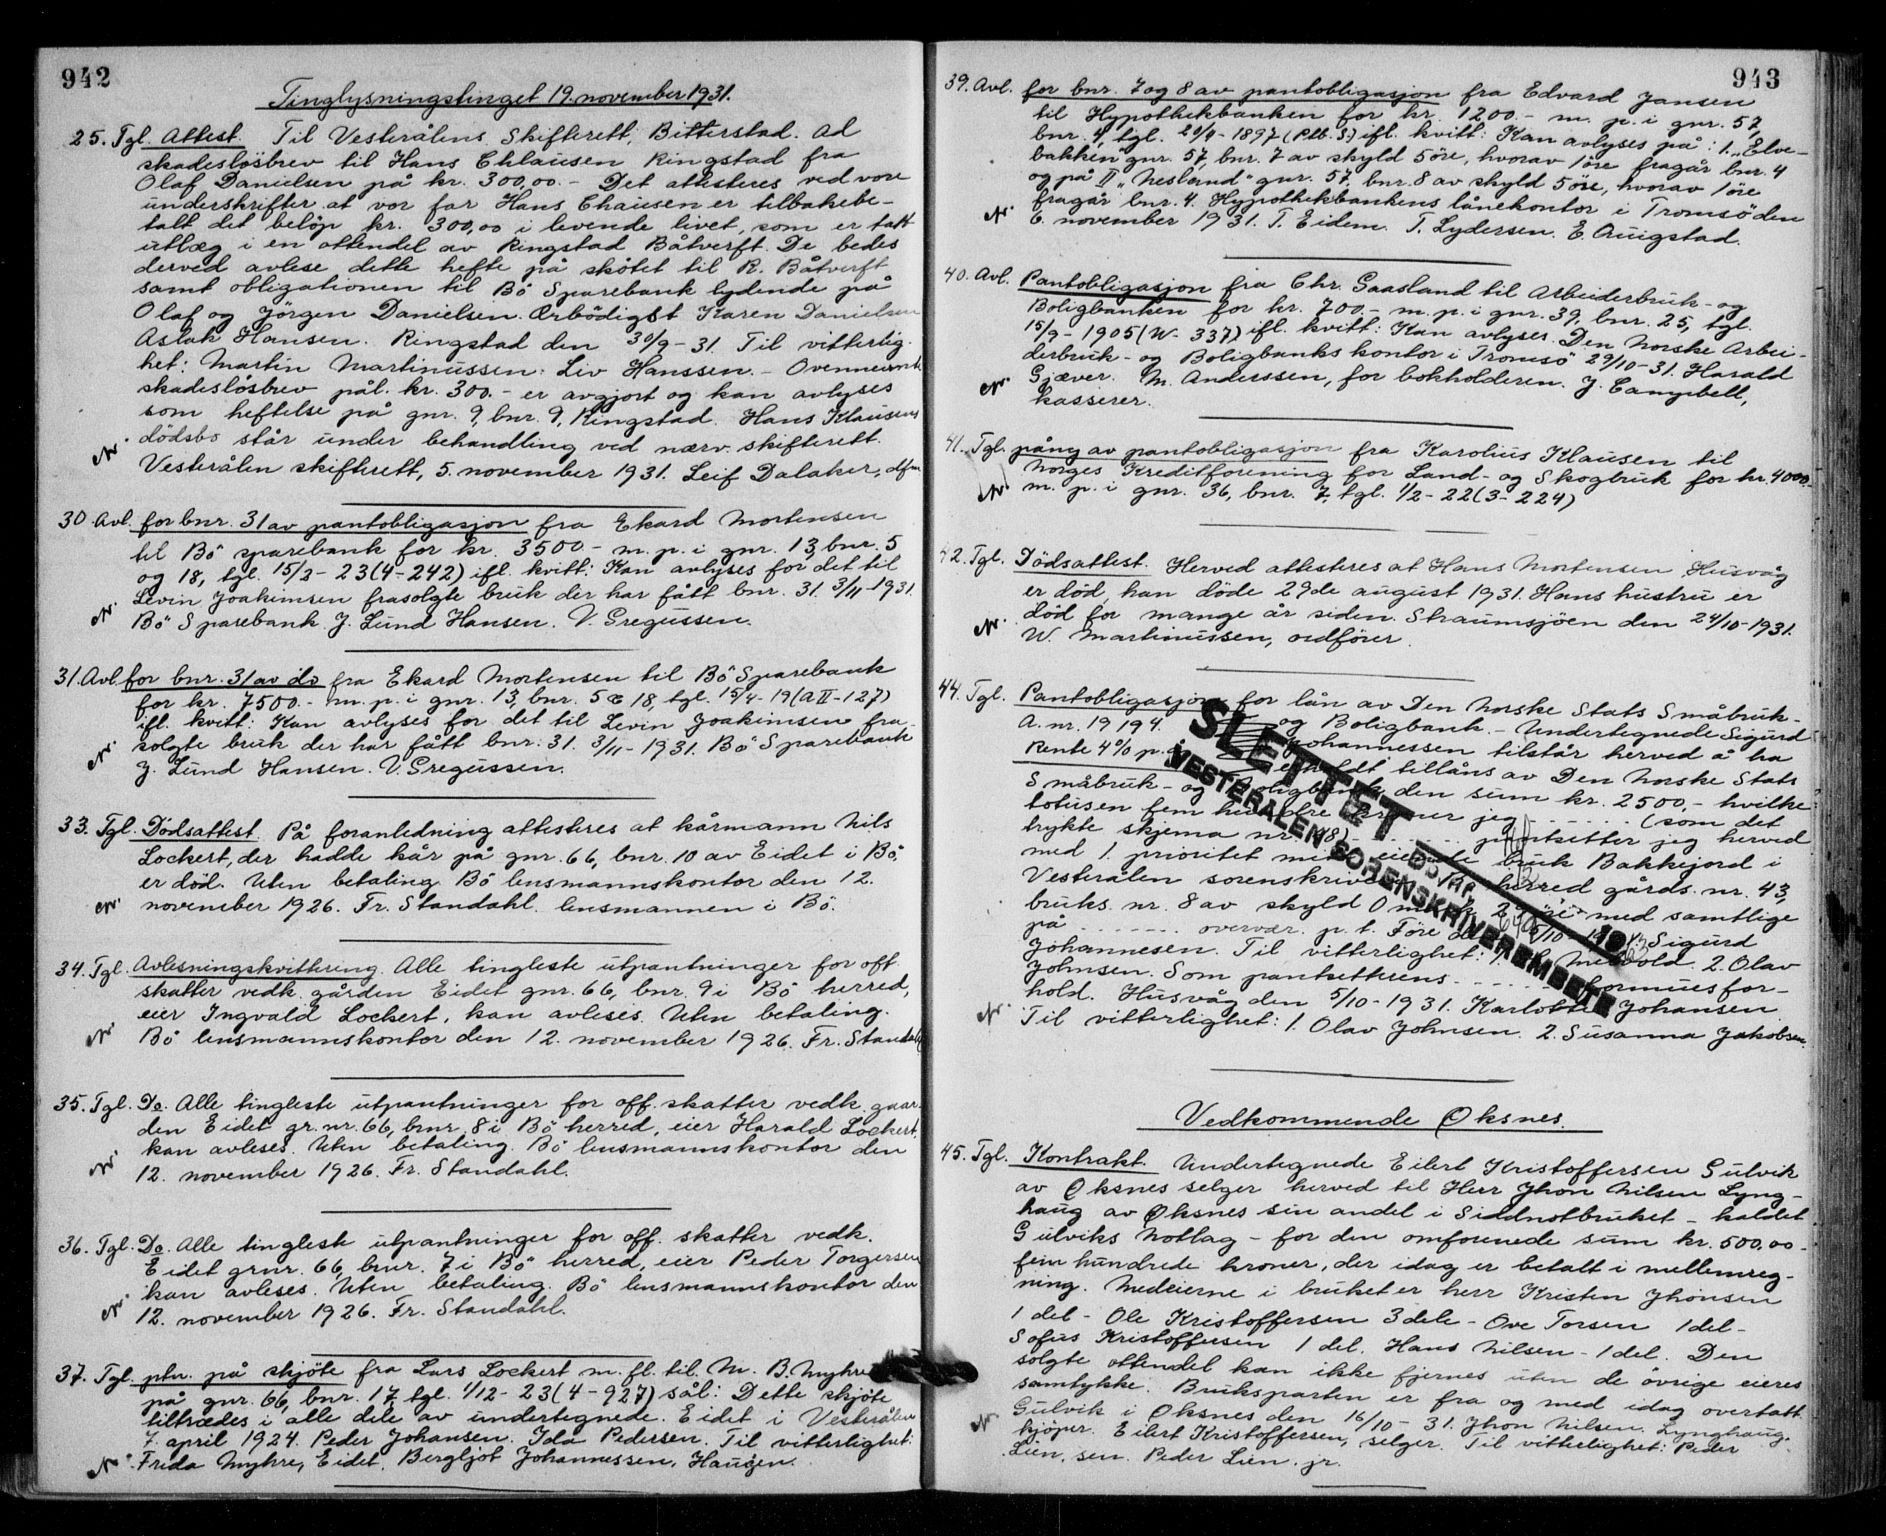 942
Tinglysningstinget 19. november 1931.
25. Tgl. Attest. Til Vesterålens Skifterett, Bitterstad. Ad
skadesløsbrev til Hans Chlausen Ringstad fra
Olaf Danielsen på kr. 300,00.- Det attesteres ved vore
underskrifter at vor far Hans Chausen er tilbakebe-
talt det beløp kr. 300,00 i levende livet, som er tatt
utlæg i en ottendel av Ringstad Båtverft. De bedes
derved avlese dette hefte på skøtet til R. Båtverft
samt obligationen til Bö Sparebank lydende på
Olaf og Jörgen Danielsen. Ærbödigst Karen Danielsen
Aslak Hansen. Ringstad den 30/9-31. Til vitterlig-
het: Martin Martinussen. Liv Hanssen.- Ovennevnt
skadesløsbrev pål. kr. 300.- er avgjort og kan avlyses
som heftelse på gnr. 9, bnr. 9, Ringstad. Hans Klausens
dödsbo står under behandling ved nærv. skifterett.
Vesterålen skifterett, 5. november 1931. Leif Dalaker, dfm
30 Avl. for bnr. 31 av pantobligasjon fra Ekard Mortensen
til Bö sparebank for kr. 3500.- m. p. i gnr. 13, bnr. 5
og 18, tgl. 15/2-23 (4-242) ifl. kvitt: Kan avlyses for det til
Levin Joakimsen frasolgte bruk der har fått bnr. 31. 3/11-1931.
Bö Sparebank J. Lund Hansen. V. Gregussen.
31. Avl. for bnr. 31 av do fra Ekard Mortensen til Bö Sparebank
for kr. 7500.- m. p. i gnr. 13, bnr. 5 & 18, tgl. 15/4-19 (A II-127)
ifl. kvitt: Kan avlyses for det til Levin Joakimsen fra-
solgte bruk der har fått bnr. 31. 3/11-1931. Bö Sparebank
J. Lund Hansen. V. Gregussen.
33. Tgl. Dødsattest. På foranledning attesteres at kårmann Nils
Lockert, der hadde kår på gnr. 66, bnr. 10 av Eidet i Bö,
er död. Uten betaling. Bö lensmannskontor den 12.
november 1926. Fr. Standahl. lensmannen i Bö.
34. Tgl. Avlesningskvittering. Alle tingleste utpantninger for off.
skatter vedk. gården Eidet gnr. 66, bnr. 9 i Bö herred,
eier Ingvald Lockert, kan avleses. Uten betaling.
Bö lensmannskontor den 12. november 1926. Fr. Standahl
35. Tgl. Do. Alle tingleste utpantninger for off. skatter vedk. gaar-
den Eidet gr. nr. 66, bnr. 8 i Bö herred, eier Harald Lockert,
kan avleses. Uten betaling. Bö lensmannskontor den
12. november 1926. Fr. Standahl.
36. Tgl. Do. Alle tinglest utpantninger for off. skatter vedk.
Eidet grnr. 66, bnr. 7 i Bö herred, eier Peder Torgersen
kan avleses. Uten betaling. Bö lensmannskontor den
12. november 1926. Fr. Standahl.
37. Tgl. ptn. på skjöte fra Lars Lockert m. fl. til M. B. Myhre
på gnr. 66, bnr. 17, tgl. 1/12-23 (4-927) sål: Dette skjöte
tiltrædes i alle dele av undertegnede. Eidet i Vesterålen
7. april 1924. Peder Johansen. Ida Pedersen. Til vitterlighet:
Frida Myhre, Eidet. Bergljot Johannessen, Haugen.
943
39. Avl. for bnr. 7 og 8 av pantobligasjon fra Edvard Jansen
til Hypothekbanken for kr. 1200.- m. p. i gnr. 57,
bnr. 4, tgl. 20/4-1897 (Ptb. S.) ifl. kvitt: Kan avlyses på: 1. „Elve-
bakken" gnr. 57, bnr. 7 av skyld 5 öre, hvorav 1 öre fragår bnr. 4
og på II „Nesland" gnr. 57, bnr. 8 av skyld 5 öre, hvorav 1 öre
fragår bnr. 4. Hypothekbankens lånekontor i Tromsö den
6. november 1931. T. Eidem. T. Lydersen. E. Quigstad.
40. Avl. Pantobligasjon fra Chr. Gaasland til Arbeiderbruk- og
Boligbanken for kr. 700.- m. p. i gnr. 39, bnr. 25, tgl.
15/9-1905 (W- 337) ifl. kvitt: Kan avlyses. Den Norske Arbei-
derbruk- og Boligbanks kontor i Tromsö 29/10-31. Harald
Gjæver. M. Anderssen, for bokholderen. J. Campbell,
kasserer.
41. Tgl. påny av pantobligasjon fra Karolius Klausen til
Norges Kreditforening for Land- og Skogbruk for kr. 4000.-
m. p. i gnr. 36, bnr. 7, tgl. 1/2-22 (3-224)
42. Tgl. Dödsattest. Herved attesteres at Hans Mortensen, Husvåg
er död, han döde 29de august 1931. Hans hustru er
död for mange år siden. Straumsjöen den 24/10-1931.
W. Martinussen, ordförer.
44. Tgl. Pantobligasjon for lån av Den Norske Stats Småbruk-
A. nr. 19194. og Boligbank.- Undertegnede Sigurd
Rente 4% p. a. Johannessen tilstår herved å ha
erholdt tillåns av Den Norske Stats
Småbruk- og Boligbank den sum kr. 2500,- hvilke
totusen fem hundre kroner jeg ...... (som det
trykte skjema nr. 18) ...... pantsetter jeg herved
med 1. prioritet mitt eiende bruk Bakkejord i
Vesterålen sorenskriveri Bö herred gårds. nr. 43,
bruks. nr. 8 av skyld 0 mark 2 öre med samtlige
på ...... overvær. p. t. Före den 5/10-1931. Sigurd
Johannesen. Til vitterlighet: 1. Melvold. 2. Olav
Johnsen. Som pantsetterens ...... formuesfor-
hold. Husvåg den 5/10-1931. Karlotte Johansen
Til vitterlighet: 1. Olav Johnsen. 2. Susanna Jakobsen.
SLETTET
DBJNR. 640 1963
VESTERÅLEN SORENSKRIVEREMBETE
Vedkommende Øksnes.
45. Tgl. Kontrakt. Undertegnede Eilert Kristoffersen Gulvik
av Øksnes selger herved til Herr Jhon Nilsen Lyng-
haug av Øksnes sin andel i Sildnotbruket - kaldet
Gulviks Notlag - for den omforenede sum kr. 500,00-
fem hundrede kroner, der idag er betalt i mellemreg-
ning. Medeierne i bruket er herr Kristen Jhonsen
1 del - Ole Kristoffersen 3 dele - Ove Torsen 1 del -
Sofus Kristoffersen 1 del. Hans Nilsen - 1 del. Den
solgte ottendel kan ikke fjernes uten de övrige eieres
samtykke. Bruksparten er fra og med idag overtatt.
Gulvik i Øksnes den 16/10-31. Jhon Nilsen Lynghaug.
kjöper. Eilert Kristoffersen, selger. Til vitterlighet: Peder
Lien, sen. Peder Lien. jr.